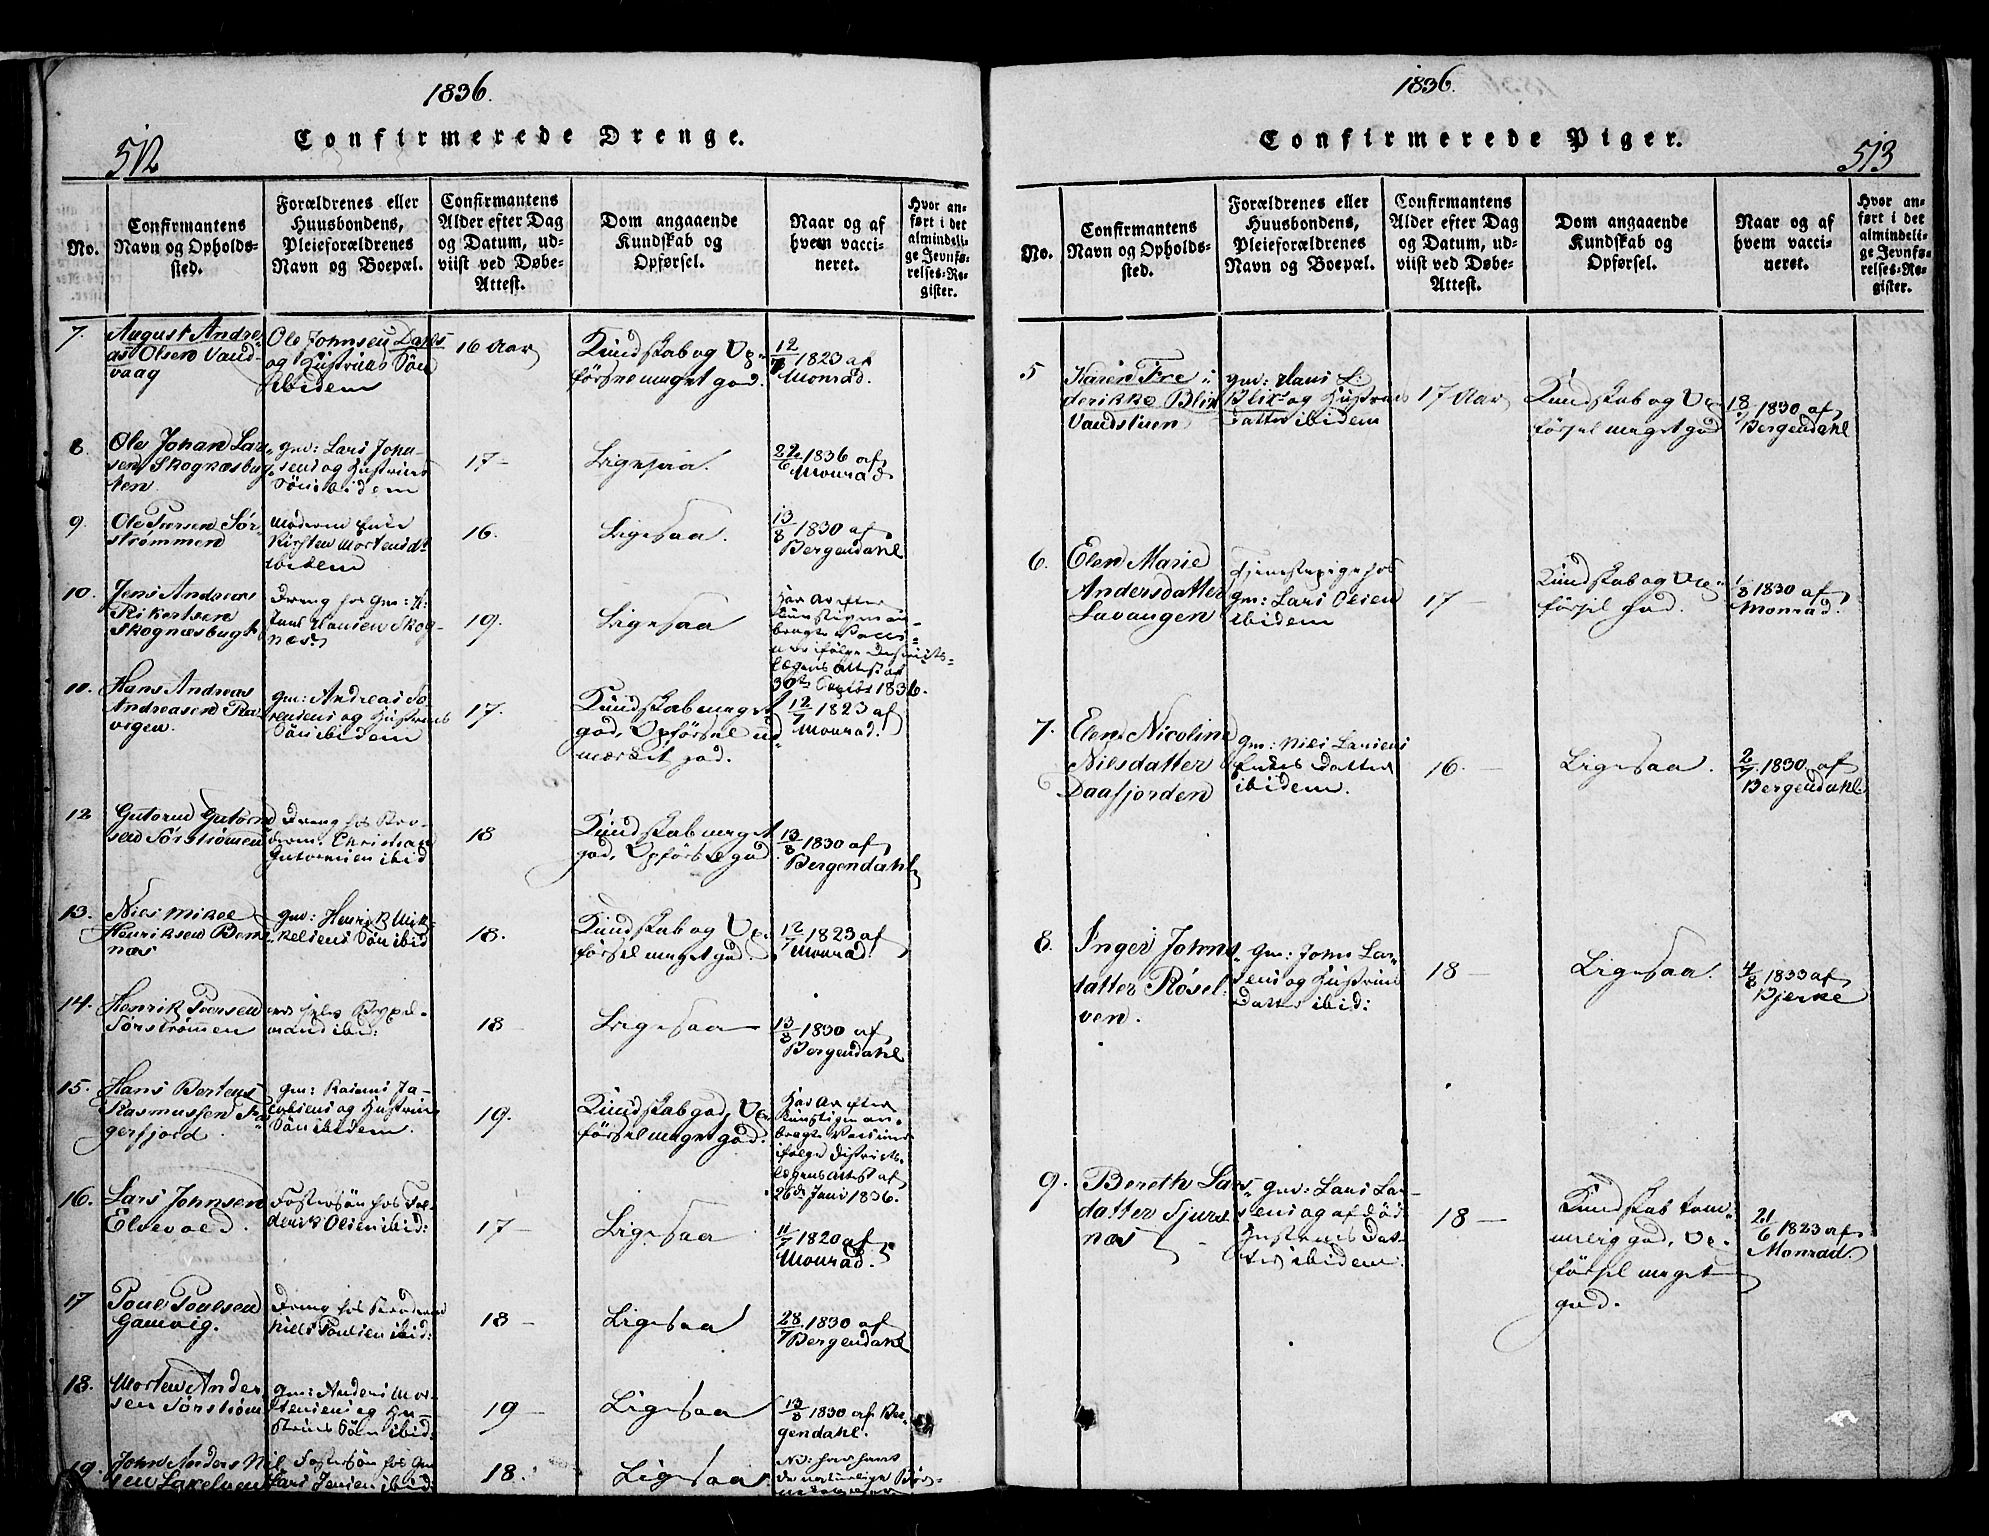 1836.
Confirmerede Drenge.
512
No.
Confirmantens
Navn og Opholds-
sted.
Forældrenes eller
Huusbondens,
Pleieforældrenes
Navn og Boepæl.
Confirmantens
Alder efter Dag
og Datum, ud-
viist ved Døbe-
Attest.
Dom angaaende
Kundskab og
Opførsel.
Naar og af
hvem vacci-
neret.
Hvor an-
ført i det
almindeli-
ge Jevnfø-
relses-Re-
gister.
7.
August Andre-
as Olsen Vand-
vaag
Ole Johnsen Dahls
og Hustrues Søn
ibidem
16 Aar
Kundskab og Op-
førsel meget god.
12/7 1823 af
Monrad.
8.
Ole Johan Lar-
sen, Skognæsbug-
ten
Gm: Lars Johan-
sens og Hustrues
Søn ibidem
17 -
Ligesaa.
22/6 1836 af
Monrad
9.
Ole Persen Sør-
strømmen
Moderen Enke
Kirsten Mortensdtr
ibidem
16.
Ligesaa.
13/8 1830 af
Bergendahl
10.
Jens Andreas
Rikertsen
Skognæsbugt
Dreng hos Gm:
Hansen Skog-
næs
19.
Ligesaa
Har Ar efter
Kunstig an-
bragte Vacci-
ne ifølge Districts-
lægens Attest af
30te 1836.
11.
Hans Andreas
Andreasen Ra-
vigen.
Gm: Andreas
og Hustrues
Søn ibidem
17.
Kundskab meget
god, Opførsel ud-
mærket god.
12/7 1823 af
Monrad.
12
Gutorm Gutorm-
sen Sørstrømen
Dreng hos Bro-
deren, Christian
Gutormsen ibid
18
Kundskab meget
god, Opførsel god
13/8 1830 af
Bergendahl
13.
Niels Mikel
Henriksen Bern-
næs
Gm: Henrik Mik-
kelsens Søn ibid
18.
Kundskab og Op-
førsel meget god
12/7 1823 af
Monrad.
14.
Henrik Persen
Sørstrømen
er selv Bopæl-
mand ibid:
18 -
Ligesaa
13/8 1830 af
Bergendahl
15.
Hans Bertens
Rasmussen
gerfjord
Gm: Rasmus Ja-
cobsens og Hustrues
Søn ibidem.
19.
Kundskab god, Op-
førsel meget god.
Har Ar efter
Kunstig an-
bragte Vaccine
ifølge Districts-
lægens Attest af
26de Juni 1836.
16.
Lars Johnsen
Elvevold.
Fostersøn hos
Olsen ibid:
17 -
Ligesaa
11/7 1820 af
Monrad.
17
Poul Poulsen
Gamvig.
Dreng hos Broderen
Niels Poulsen ibid:
18 -
Ligesaa
28/7 1830 af
Bergendahl
18.
Morten Ander-
sen Sørstrøm
Gm: Anders Mor-
tensens og Hu-
strues Søn ibid:
19 -
Ligesaa
13/8 1830 af Ber-
gendahl.
19.
John Anders Nil-
sen
Fostersøn hos Gm
Lars Jensen ibid:
18.
Ligesaa
NB: har havt
de naturlige Bør-
1836.
Confirmerede Piger.
513
No.
Confirmantens
Navn og Opholds-
sted.
Forældrenes eller
Huusbondens,
Pleieforældrenes
Navn og Boepæl.
Confirmantens
Alder efter Dag
og Datum, ud-
viist ved Døbe-
Attest.
Dom angaaende
Kundskab og
Opførsel.
Naar og af
hvem vacci-
neret.
Hvor an-
ført i det
almindeli-
ge Jevnfø-
relses-Re-
gister.
5
Karen Fre-
derikke Blix
Vandstuen
Gm: Hans L.
Blix og Hustrues
Datter ibidem
17 Aar
Kundskab og Op-
førsel meget god
18/7 1830 af
Bergendahl
6.
Elen Marie
Andersdatter
Lavangen
Tjenestepige hos
Gm: Lars Olsen
ibidem
17 -
Kundskab og Op-
førsel god.
1/8 1830 af
Monrad.
7.
Elen Nicoline
Nilsdatter
Daafjorden
Gm: Niels Larsens
Enkes Datter
ibidem.
16. -
Ligesaa.
2/7 1830 af
Bergendahl
8.
Inger Johns-
datter Røsel-
ven.
Gm: John Lar-
sens og Hustrues
Datter ibid:
18 -
Ligesaa.
4/8 1833 af
Bjerke
9.
Bereth Lars-
datter Sjurs-
næs
Gm: Lars Lar-
sens og afdød
Hustrues Dat-
ter ibidem.
18 -
Kundskab tem-
melig god, Op-
førsel meget
god.
21/6 1823 af
Monrad.